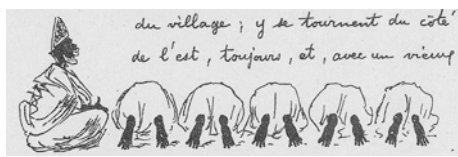 du village ; y se tournent du côté
de l'est, toujours, et, avec un vieux